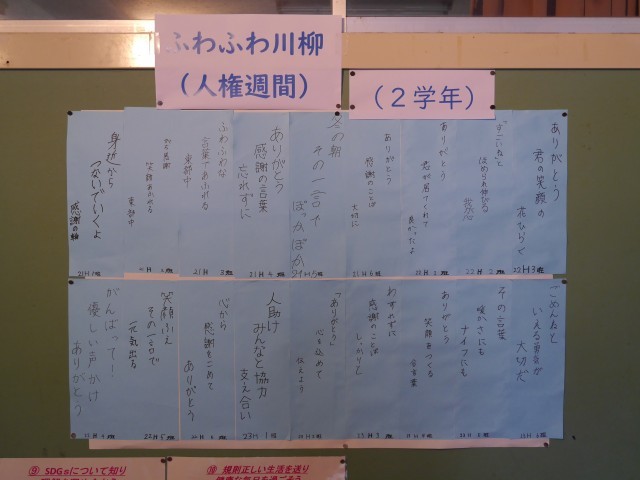 ふわふわ川柳
(人権週間)
(2学年)
ありがとう
君の笑顔の
花ひらく
22H3班
「すごいね」と
ほめられ伸びる
ありがとう
君が居てくれて
良かったよ
ありがとう
感謝のことば
大切に
21H6班
冬の朝
その一言で
ぽっかぽか
21H5班
ありがとう
感謝の言葉
忘れずに
21H4班
ふわふわな
言葉であふれる
東部中
21H3班
笑顔あふれる
東部中
身近から
つないでいくよ
感謝の輪
21H1班
ごめんねと
いえる勇気が
大切だ
その言葉
暖かさにも
ナイフにも
ありがとう
笑顔をつくる
合言葉
わすれずに
感謝のことば
しっかりと
「ありがとう」
心を込めて
伝えよう
人助け
みんなと協力
支え合い
23H1班
心から
感謝をこめて
ありがとう
笑顔ふえ
その一言で
元気出る
22H5班
がんばってー!
優しい声かけ
ありがとう
⑨ SDGsについて知り
⑩ 規則正しい生活を送り